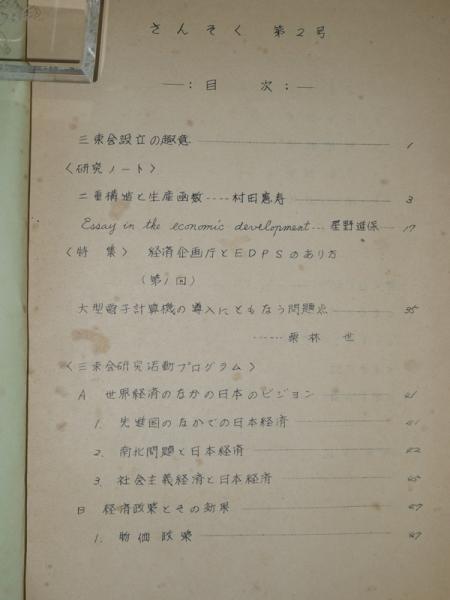 さんそく 第2号
—:目 次:—
三束会設立の趣意 1
〈研究ノート〉
二重構造と生産函数----村田憲寿 3
Essay in the economic development---星野進保 17
〈特 集〉 経済企画庁とEDPSのあり方
(第1回)
大型電子計算機の導入にともなう問題点 35
------栗林 世
〈三束会研究活動プログラム〉
A 世界経済のなかの日本のビジョン 41
1. 先進国のなかでの日本経済 41
2. 南北問題と日本経済 42
3. 社会主義経済と日本経済 45
B 経済政策とその効果 47
1. 物価政策 47